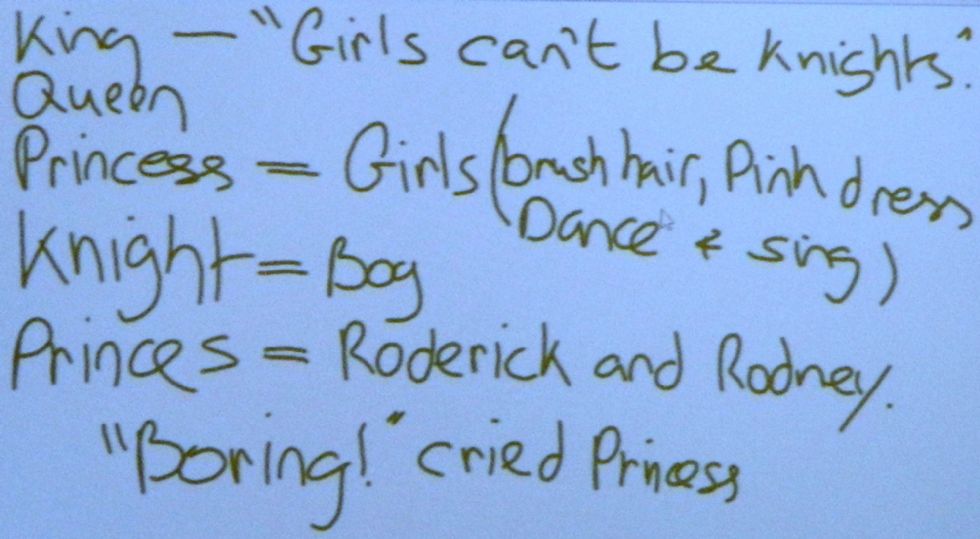 King — "Girls can't be knights."
Queen
Princess = Girls (brush hair, Pink dress
Dance & sing)
Knight = Boy
Princes = Roderick and Rodney.
"Boring!" cried Princess